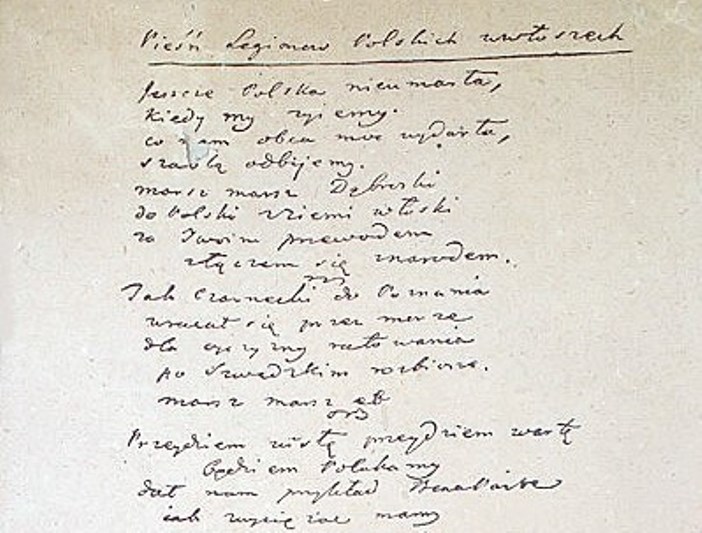 Pieśń Legionow Polskich wewłoszech
Jeszcze Polska nieumarła,
kiedy my żyiemy.
co nam obca moc wydarła,
szablą odbijemy.
marsz marsz Dąbroski
do Polski zziemi włoski
za Twoim przewodem
złączem się znarodem.
Jak Czarnecki do Poznania
wracał się przez morze
dla oyczyzny ratowania
po Szwedzkim rozbiorze.
marsz marsz etc
Przeydziem wisłę przeydziem wartę
będziem Polakamy
dał nam przykład Bonaparte
iak zwyciężac mamy